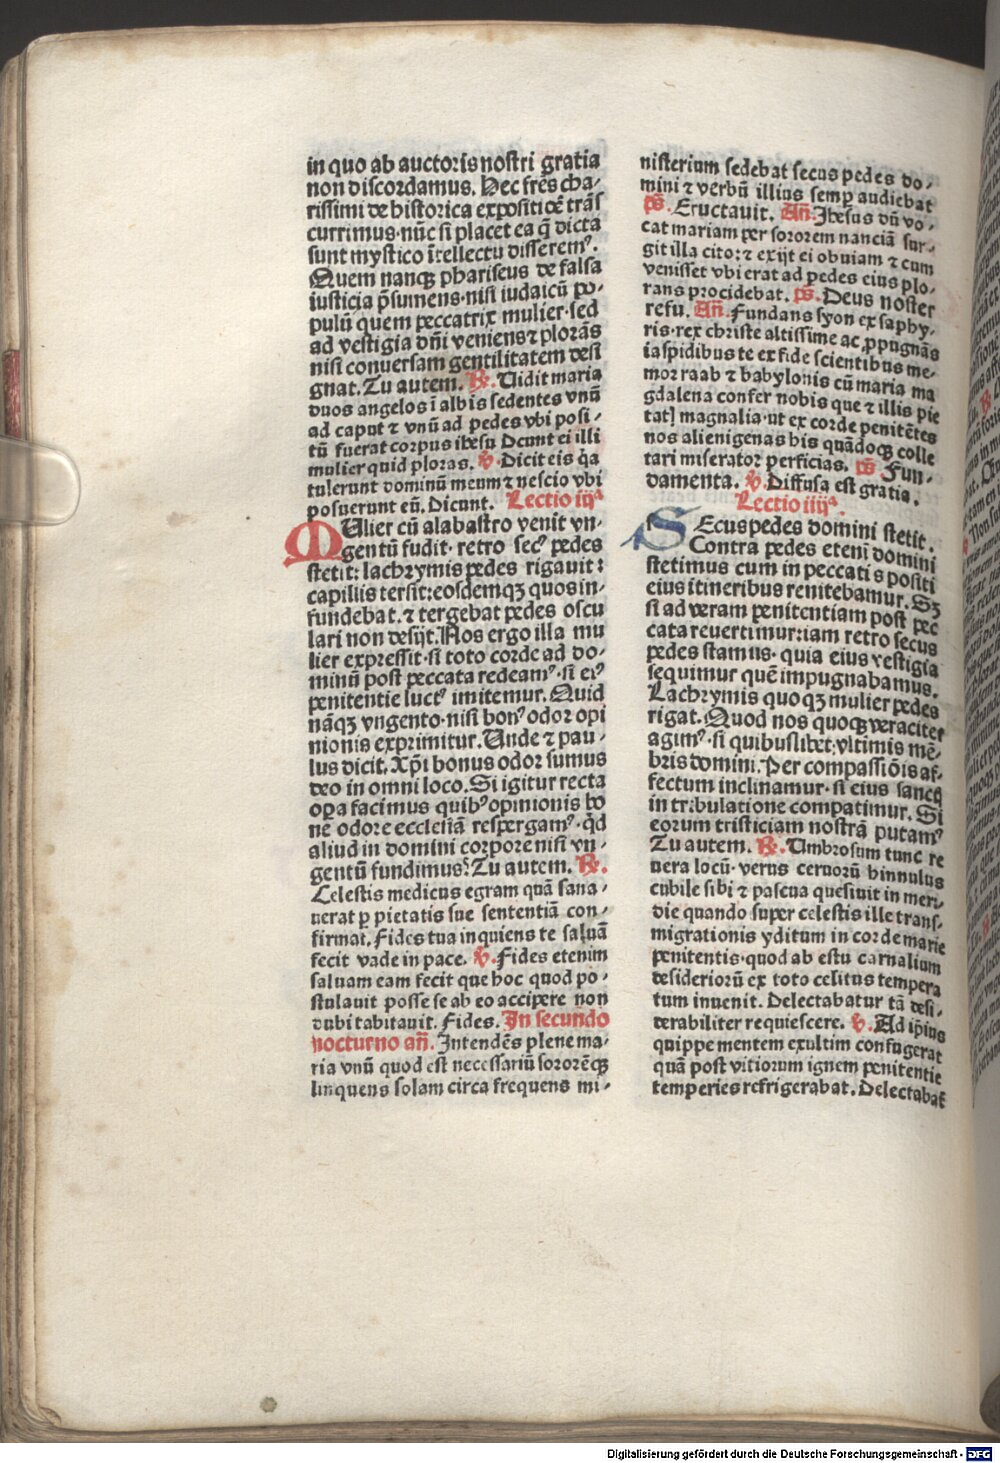 in quo ab auctoris nostri gratia
non discordamus. Hec frēs cha⸗
rissimi de historica expositiōe trās
currimus· nūc si placet ea q̄ dicta
sunt mystico ītellectu disseremꝰ.
Quem nanqꝫ phariseus de falsa
iusticia p̄sumens· nisi iudaicū po⸗
pulū quem peccatrix mulier· sed
ad vestigia dn̄i veniens ⁊ plorās
nisi conuersam gentilitatem desi
gnat. Tu autem. ℟. Uidit maria
duos angelos ī albis sedentes vnū
ad caput ⁊ vnū ad pedes vbi posi⸗
tū fuerat corpus ihesu Dcunt ei illi
mulier quid ploras. ℣. Dicit eis q̇a
tulerunt dominū meum ⁊ nescio vbi
posuerunt eū. Dicunt. Lectio iijᵃ
MUlier cū alabastro venit vn⸗
gentū fudit· retro secꝰ pedes
stetit: lachrymis pedes rigauit:
capillis tersit: eosdemqꝫ quos in⸗
fundebat. ⁊ tergebat pedes oscu
lari non desijt. Nos ergo illa mu
lier expressit· si toto corde ad do⸗
minū post peccata redeamꝰ· si eiꝰ
penitentie luctꝰ imitemur. Quid
nāqꝫ vngento· nisi bonꝰ odor opi
nionis exprimitur. Unde ⁊ pau⸗
lus dicit. Xp̄i bonus odor sumus
deo in omni loco. Si igitur recta
oꝑa facimus quibꝰ opinionis bo
ne odore ecclesiā respergamꝰ· qd̄
aliud in domini corpore nisi vn⸗
gentū fundimusꝰ Tu autem. ℟.
Celestis medicus egram quā sana⸗
uerat ꝑ pietatis sue sententiā con⸗
firmat. Fides tua inquiens te saluā
fecit vade in pace. ℣. Fides etenim
saluam eam fecit que hoc quod po⸗
stulauit posse se ab eo accipere non
dubi tabitauit. Fides. In secundo
nocturno an̄. Intendēs plene ma⸗
ria vnū quod est necessariū sororēqꝫ
linquens solam circa frequens mi⸗
nisterium sedebat secus pedes do⸗
mini ⁊ verbū illius semꝑ audiebat
ps̄. Eructauit. An̄. Ihesus dū vo⸗
cat mariam per sororem nanciā sur⸗
git illa cito: ⁊ exijt ei obuiam ⁊ cum
venisset vbi erat ad pedes eius plo⸗
rans procidebat. ps̄. Deus noster
refu. An̄. Fundans syon ex saphy⸗
ris· rex christe altissime ac ꝓpugnās
iaspidibus te ex fide scientibus me⸗
mor raab ⁊ babylonis cū maria ma
gdalena confer nobis que ⁊ illis pie
tatꝭ magnalia· ut ex corde penitētes
nos alienigenas his quādoqꝫ colle
tari miserator perficias. ps̄ Fun⸗
damenta. ℣. Diffusa est gratia.
Lectio iiijᵃ.
SEcus pedes domini stetit.
Contra pedes etenī domini
stetimus cum in peccatis positi
eius itineribus renitebamur. Sꝫ
si ad veram penitentiam post pec
cata reuertimur: iam retro secus
pedes stamus· quia eius vestigia
sequimur quē impugnabamus.
Lachrymis quoqꝫ mulier pedes
rigat. Quod nos quoqꝫ veraciter
agimꝰ· si quibuslibet vltimis mē⸗
bris domini. Per compassiōis af⸗
fectum inclinamur· si eius sanctꝭ
in tribulatione compatimur. Si
eorum tristiciam nostrā putamꝰ
Tu autem. ℟. Umbrosum tunc re
uera locū· verus ceruorū binnulus
cubile sibi ⁊ pascua quesiuit in meri⸗
die quando super celestis ille trans⸗
migrationis yditum in corde marie
penitentis· quod ab estu carnalium
desideriorū ex toto celitus tempera
tum inuenit. Delectabatur tā desi⸗
derabiliter requiescere. ℣. Ad ip̄ius
quippe mentem exultim confugerat
quā post vitiorum ignem penitentie
temperies refrigerabat. Delectabat̄
Digitalisierung gefördert durch die Deutsche Forschungsgemeinschaft - DFG